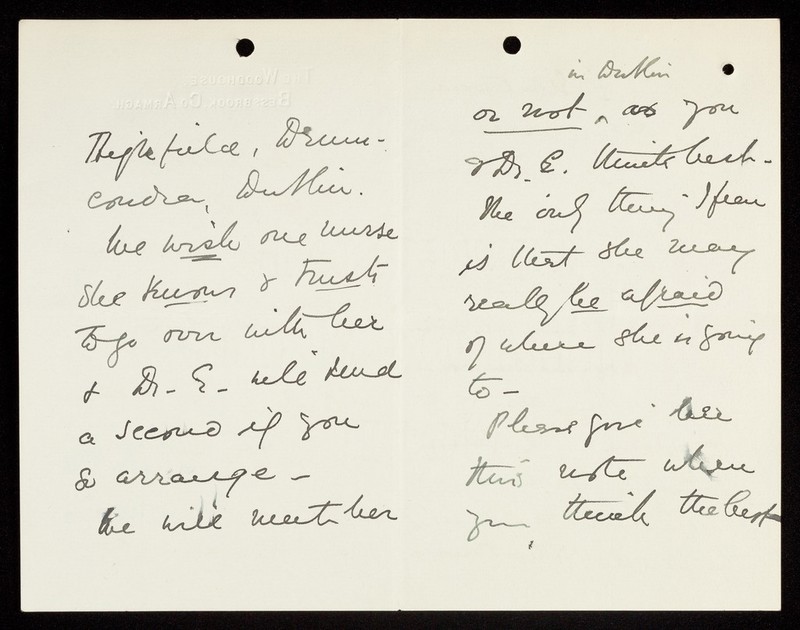 Highfield, Drum-
condra, Dublin.
We wish one nurse
she knows & trusts
to go over with her
& Dr. E. will send
a second if you
so arrange -
We will meet her
in Dublin
or not, as you
& Dr. E. think best -
The only thing I fear
is that she may
really be afraid
of where she is going
to -
Please give her
this note when
you think the best
THE WOODHOUSE
BESSBROOK CO ARMAGH